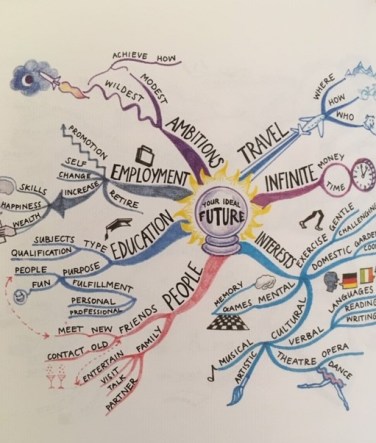 YOUR IDEAL
FUTURE
AMBITIONS
ACHIEVE HOW
MODEST
WILDEST
TRAVEL
WHERE
HOW
WHO
INFINITE
MONEY
TIME
INTERESTS
EXERCISE
GENTLE
CHALLENGING
DOMESTIC
LANGUAGES
READING
WRITING
VERBAL
CULTURAL
THEATRE
OPERA
DANCE
MUSICAL
ARTISTIC
MENTAL
MEMORY
GAMES
PEOPLE
FRIENDS
MEET NEW
CONTACT OLD
FAMILY
ENTERTAIN
VISIT
TALK
PARTNER
EDUCATION
TYPE
SUBJECTS
QUALIFICATION
PURPOSE
PEOPLE
FUN
FULFILLMENT
PERSONAL
PROFESSIONAL
EMPLOYMENT
PROMOTION
SELF
CHANGE
INCREASE
SKILLS
HAPPINESS
WEALTH
RETIRE